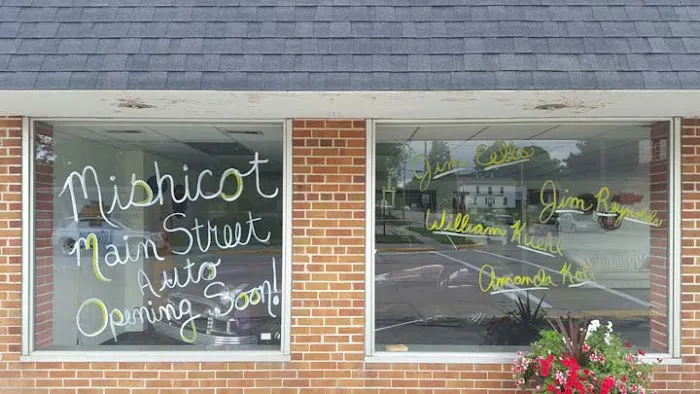 Mishicot
Main Street
Auto
Opening Soon!
Jim
Jim Reynolds
William
Amanda